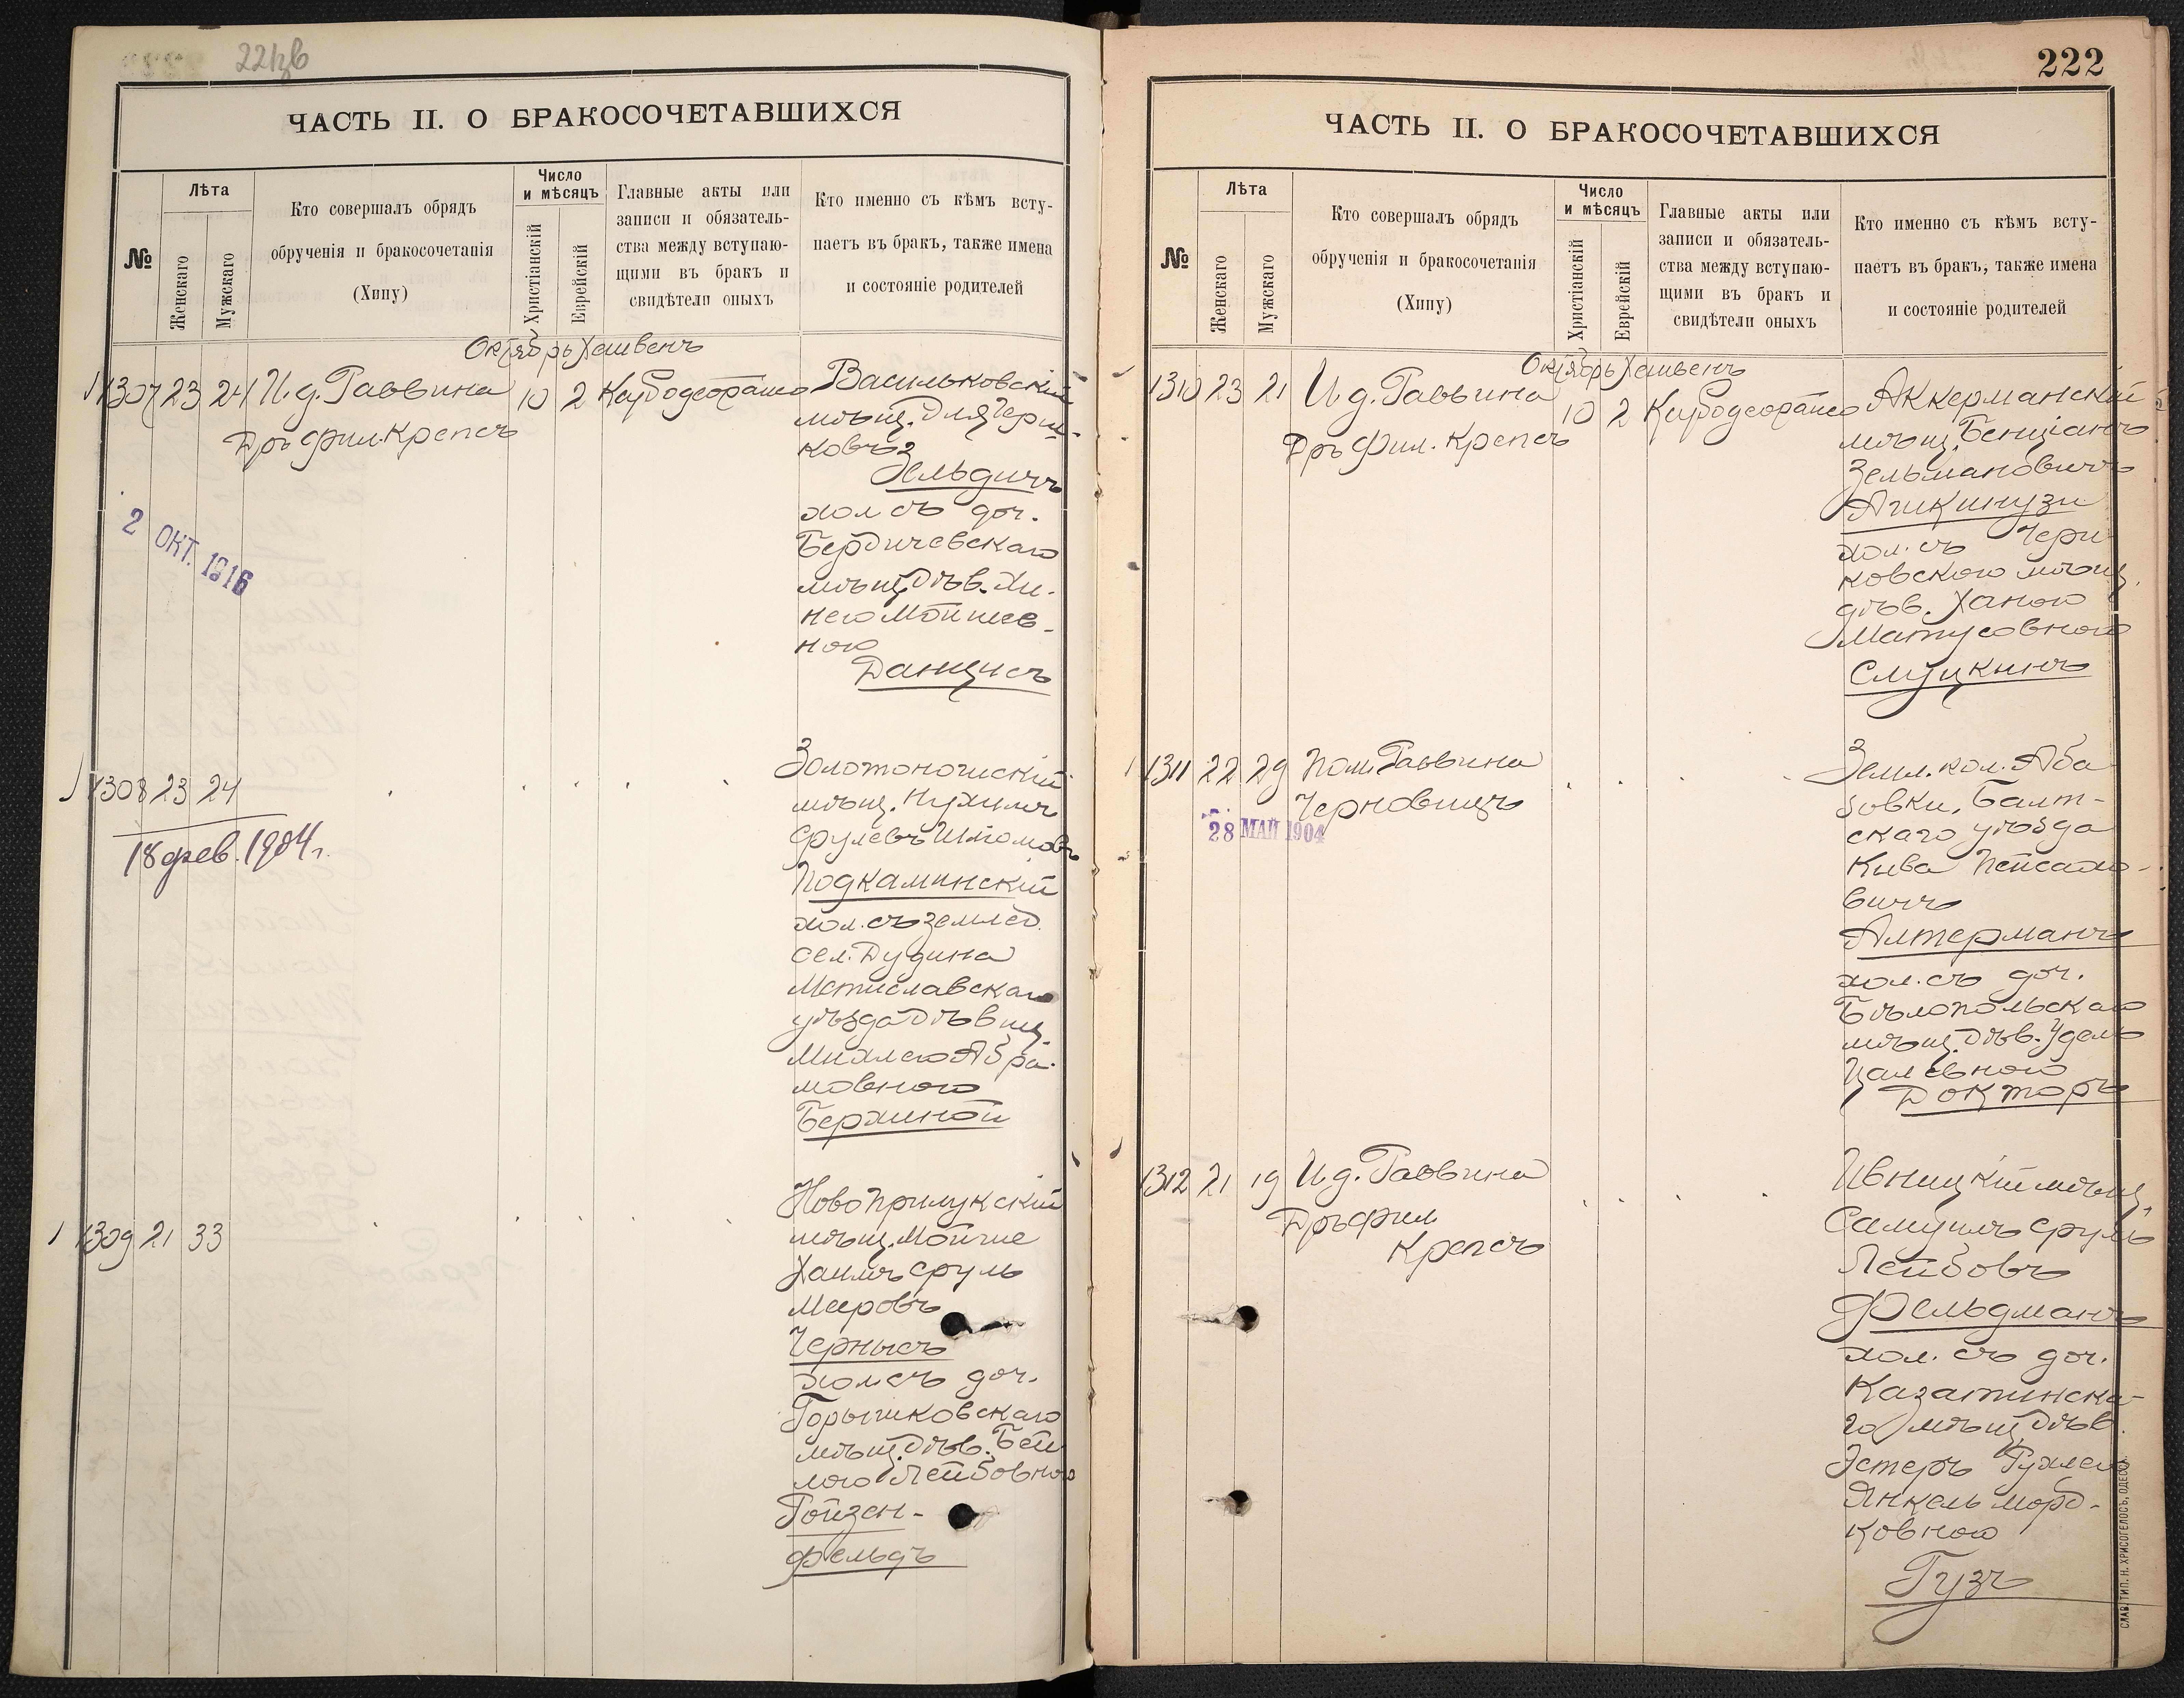 ЧАСТЬ II. О БРАКОСОЧЕТАВШИХСЯ
№
Лѣта
Женскаго
Мужскаго
Кто совершалъ обрядъ
обрученія и бракосочетанія
(Хипу)
Число
и мѣсяцъ
Христіанскій
Еврейскій
Главные акты или
записи и обязатель-
ства между вступаю-
щими въ бракъ и
свидѣтели оныхъ
Кто именно съ кѣмъ всту-
паетъ въ бракъ, также имена
и состояніе родителей
Октябрь Хешвенъ
1307 23 24 И.д. Раввина 10 2
Дръ Фил. Крепсъ
Васильковскій
мѣщ.
Зельдичъ
хол съ доч.
Бердичевскаго
мѣщ. дѣв. Хи-
нею Мойшев-
ною
Данцисъ
2 ОКТ. 1916
1308 23 24
18 фев. 1904 г.
Золотоношскій
мѣщ. Нухимъ
Срулевъ Шліомовъ
Подкаминскій
хол. съ землед.
сел. Дудина
Мстиславскаго
уѣзда дѣвиц.
Михлею Абра-
мовною
Берхиной
1309 21 33
Новоприлукскій
мѣщ. Мойше
Хаимъ Сруль
Мееровъ
Чернысъ
хол съ доч.
Горышковскаго
мѣщ. дѣв. Бей
лою Лейбовною
Гойзен-
фельдъ
222
ЧАСТЬ II. О БРАКОСОЧЕТАВШИХСЯ
№
Лѣта
Женскаго
Мужскаго
Кто совершалъ обрядъ
обрученія и бракосочетанія
(Хипу)
Число
и мѣсяцъ
Христіанскій
Еврейскій
Главные акты или
записи и обязатель-
ства между вступаю-
щими въ бракъ и
свидѣтели оныхъ
Кто именно съ кѣмъ всту-
паетъ въ бракъ, также имена
и состояніе родителей
Октябрь Хешвенъ
1310 23 21 И.д. Раввина 10 2
Дръ Фил. Крепсъ
Аккерманскій
мѣщ. Бенціанъ
Зельмановичъ
Ашкинузи
хол. съ Чери
ковского мѣщ.
дѣв. Ханою
Матусовною
Слуцкинъ
1311 22 29 Пом. Раввина
Черновицъ
28 МАЙ 1904
Земл. кол. Аба
зовки, Балт-
скаго уѣзда
Кива Пейсахо-
вичъ
Алтерманъ
хол. съ доч.
Бѣлопольскаго
мѣщ. дѣв. Удель
Цалевною
Докторъ
1312 21 19 И.д. Раввина
Дръ Фил
Крепсъ
Ивницкій мѣщ.
Самуилъ Сруль
Лейбовъ
Фельдманъ
хол. съ доч.
Казатинска-
го мѣщ. дѣв.
Эстеръ Рухлею
Янкель Морд-
ковною
Гузъ
СЛАВ. ТИП. Н. ХРИСОГЕЛОСЪ, ОДЕССА